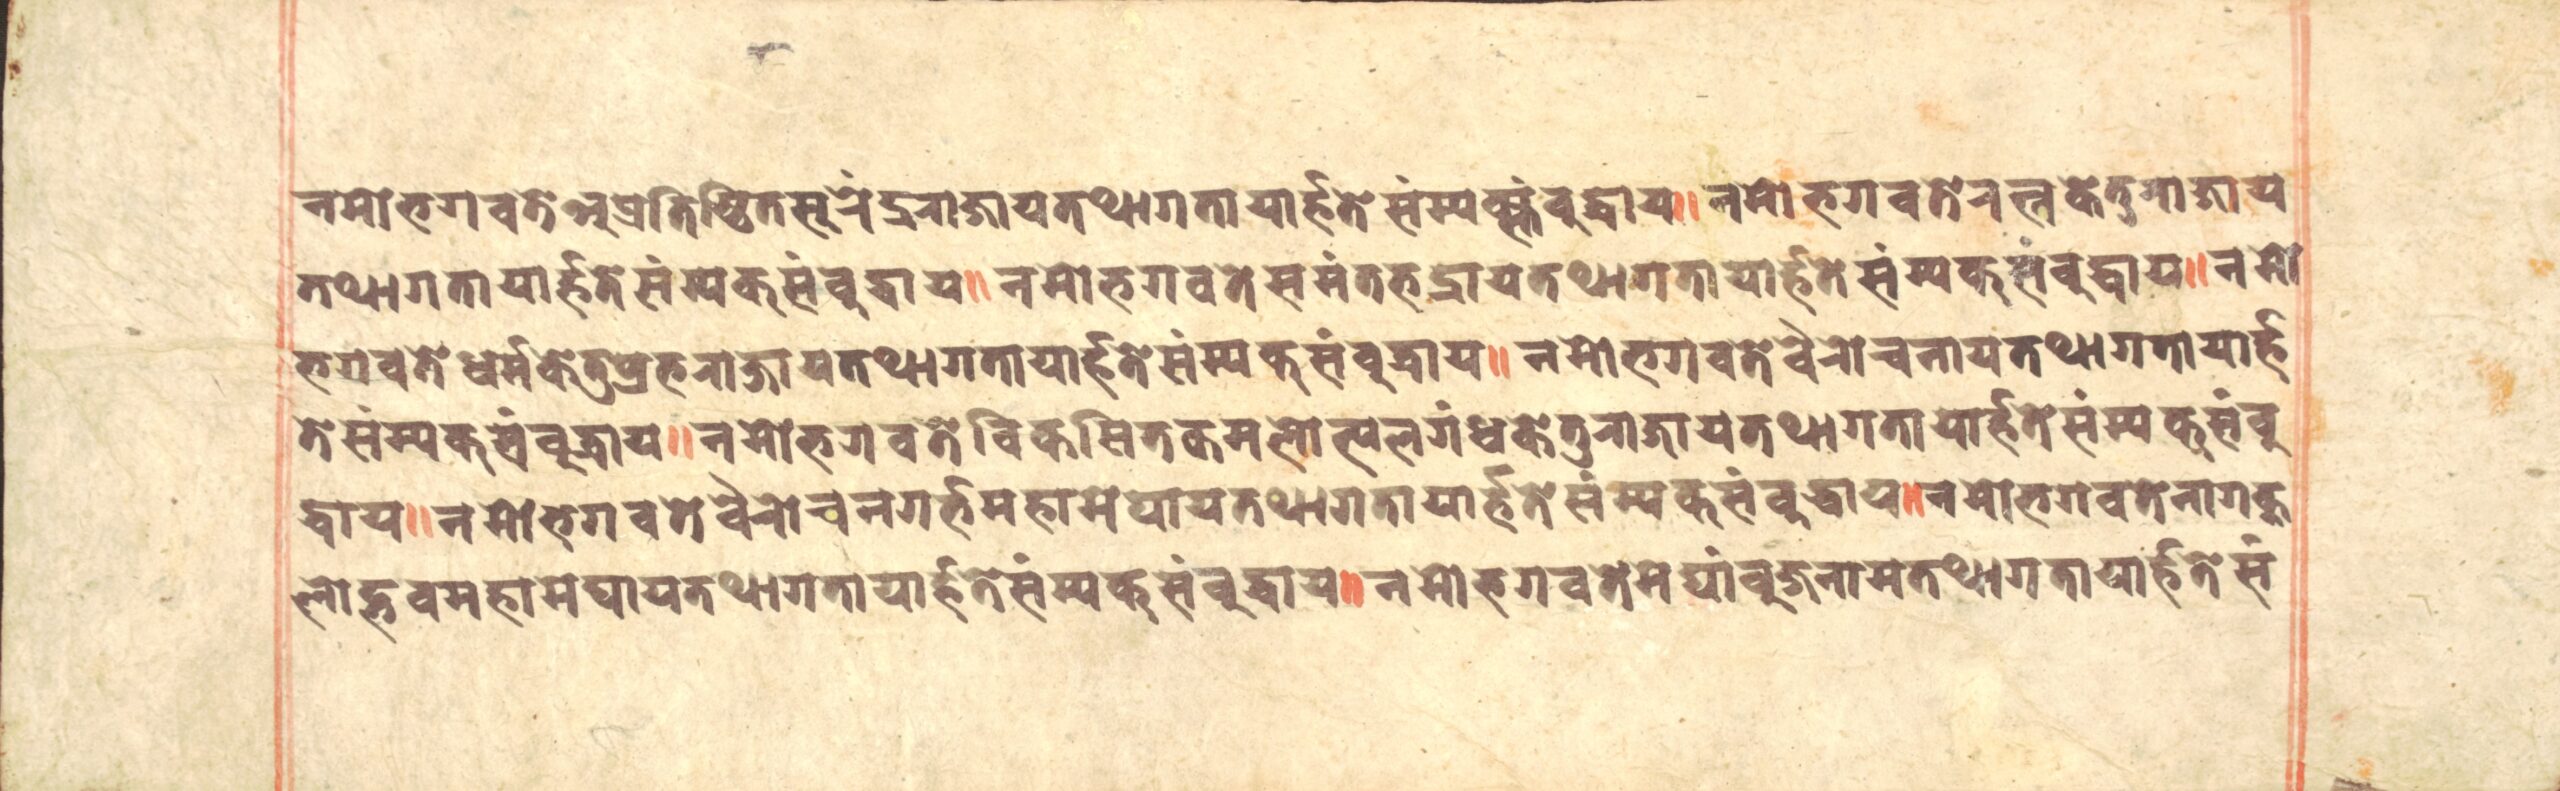 नमोभगवतेसुप्रतिष्ठितसूरेंद्रराजायतथागतायार्हतेसंम्यक्संबुद्धाय॥नमोभगवतेरत्नकेतुराजाय
तथागतायार्हतेसंम्यक्संबुद्धाय॥नमोभगवतेसमंतभद्रायतथागतायार्हतेसंम्यक्संबुद्धाय॥नमो
भगवतेधर्मकेतुप्रभराजायतथागतायार्हतेसंम्यक्संबुद्धाय॥नमोभगवतेवैरोचनायतथागतायार्ह
तेसंम्यक्संबुद्धाय॥नमोभगवतेविकसितकमलोत्पलगंधकेतुराजायतथागतायार्हतेसंम्यक्संबु
द्धाय॥नमोभगवतेवैरोचनगर्भमहामेघायतथागतायार्हतेसंम्यक्संबुद्धाय॥नमोभगवतेनागकु
लोद्भवमहामघायतथागतायार्हतेसंम्यक्संबुद्धाय॥नमोभगवतेमेघांबुजनामतथागतायार्हतेसं